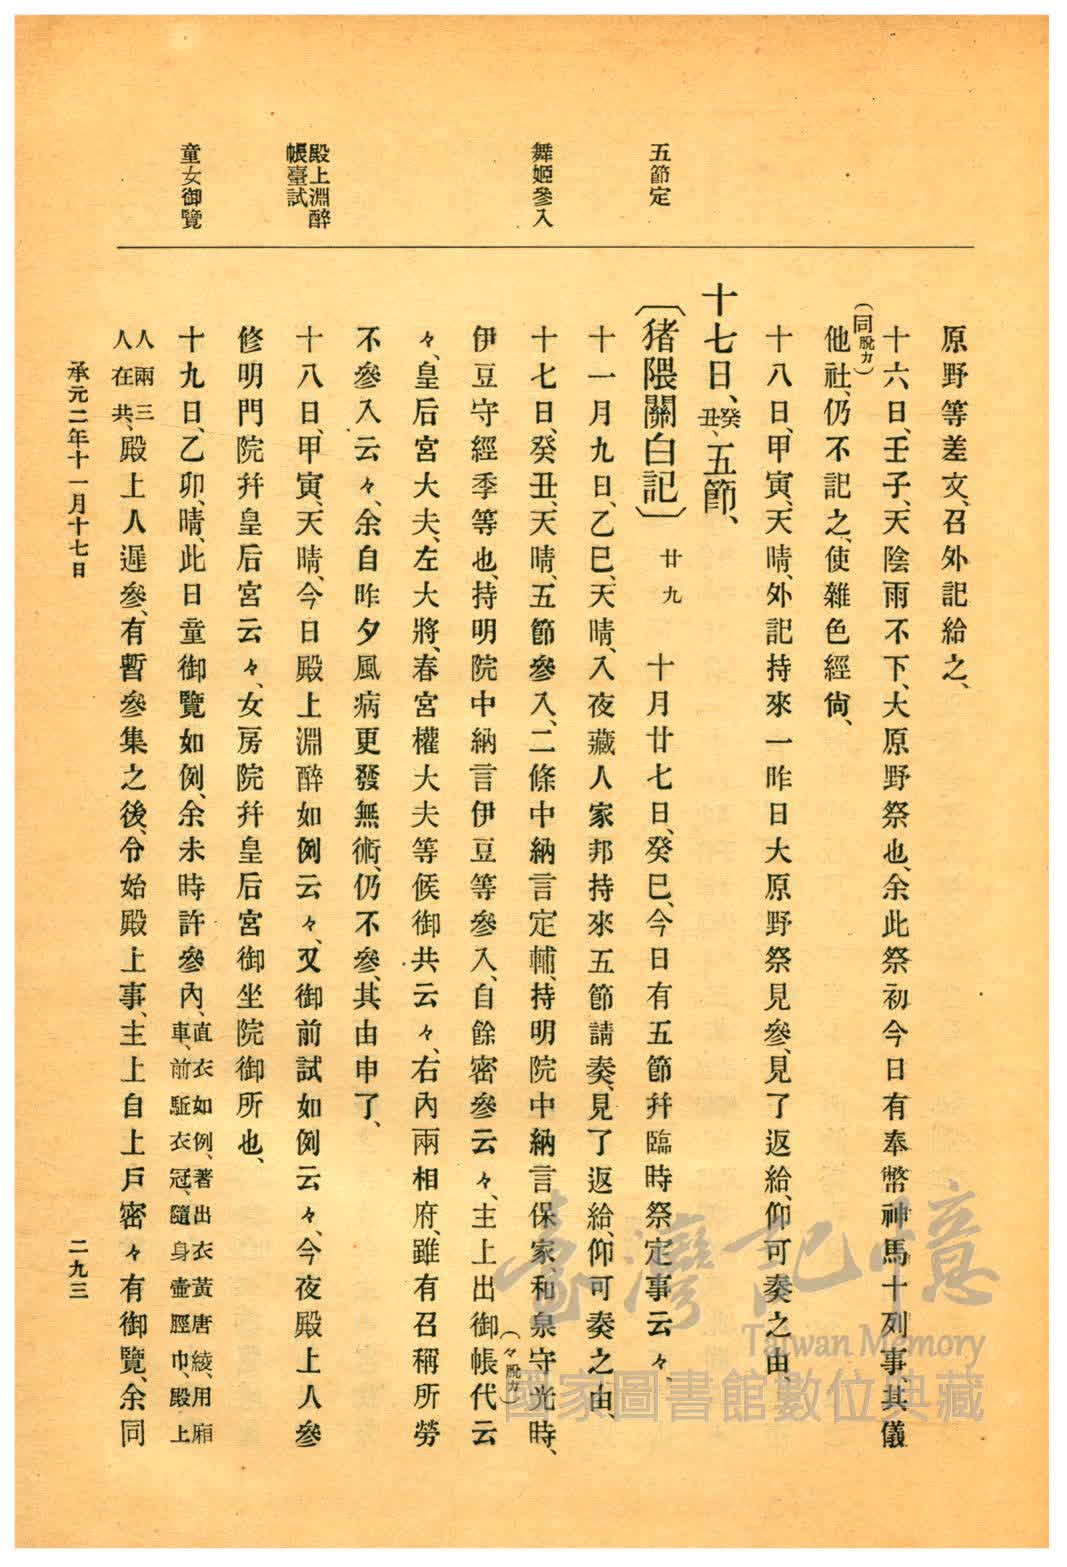 五節定
舞姬參入
殿上淵醉
帳臺試
童女御覽
原野等差文、召外記給之、
十六日、壬子、天陰雨不下、大原野祭也、余此祭初今日有奉幣神馬十列事、其儀
(同脫カ)
他社、仍不記之、使雜色經尙、
十八日、甲寅、天晴、外記持來一昨日大原野祭見參、見了返給、仰可奏之由、
十七日、癸丑、五節、
〔猪隈關白記〕 廿九 十月廿七日、癸巳、今日有五節幷臨時祭定事云々、
十一月九日、乙巳、天晴、入夜藏人家邦持來五節請奏、見了返給、仰可奏之由、
十七日、癸丑、天晴、五節參入、二條中納言定輔、持明院中納言保家、和泉守光時、
伊豆守經季等也、持明院中納言伊豆等參入、自餘密參云々、主上出御帳代云
(々脫カ)
々、皇后宮大夫、左大將、春宮權大夫等候御共云々、右內兩相府、雖有召稱所勞
不參入云々、余自昨夕風病更發無術、仍不參、其由申了、
十八日、甲寅、天晴、今日殿上淵醉如例云々、又御前試如例云々、今夜殿上人參
修明門院幷皇后宮云々、女房院幷皇后宮御坐院御所也、
十九日、乙卯、晴、此日童御覽如例、余未時許參內、直衣如例、著出衣黃唐綾、用廂
車、前駈衣冠、隨身壺脛巾、殿上
人兩三
人在共、殿上人遲參、有暫參集之後、令始殿上事、主上自上戶密々有御覽、余同
承元二年十一月十七日
二九三
臺灣記憶
Taiwan Memory
國家圖書館數位典藏